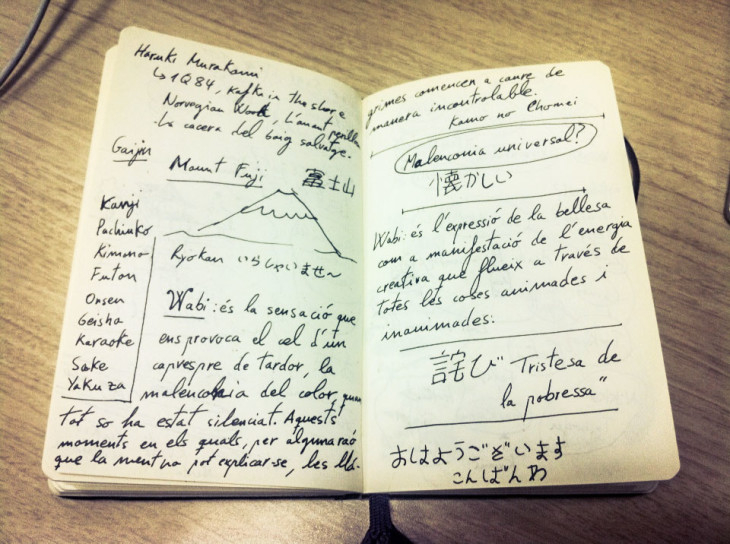 Haruki Murakami
↳ 1Q84, Kafka in the shore
Norwegian Wood, L'amant perillós
La cacera del boig salvatge.
Gaijin
Mount Fuji 富士山
Kanji
Pachinko
Kimono
Futon
Onsen
Geisha
Karaoke
Sake
Yakuza
Ryokan いらしゃいませ〜
Wabi: és la sensació que
ens provoca el cel d'un
capvespre de tardor, la
malenconia del color, quan
tot so ha estat silenciat. Aquests
moments en els quals, per alguna raó
que la ment no pot explicar-se, les llà-
grimes comencen a caure de
manera incontrolable.
Kamo no Chomei
Malenconia universal?
懐かしい
Wabi: és l'expressió de la bellesa
com a manifestació de l'energia
creativa que flueix a través de
totes les coses animades i
inanimades.
詫び Tristesa de
la pobressa"
おはようございます
こんばんわ